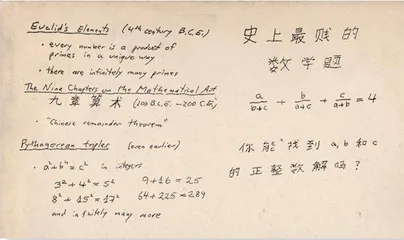 Euclid's Elements (4th century B.C.E.)
• every number is a product of
primes in a unique way
• there are infinitely many primes
The Nine Chapters on the Mathematical Art
九章算术 (200 B.C.E. - 200 C.E.)
• "Chinese remainder theorem"
Pythagorean triples (even earlier)
• a² + b² = c² in integers
3² + 4² = 5² 9 + 16 = 25
8² + 15² = 17² 64 + 225 = 289
and infinitely many more
史上最贱的
数学题
a/(b+c) + b/(a+c) + c/(a+b) = 4
你能找到 a, b 和 c
的正整数解吗？